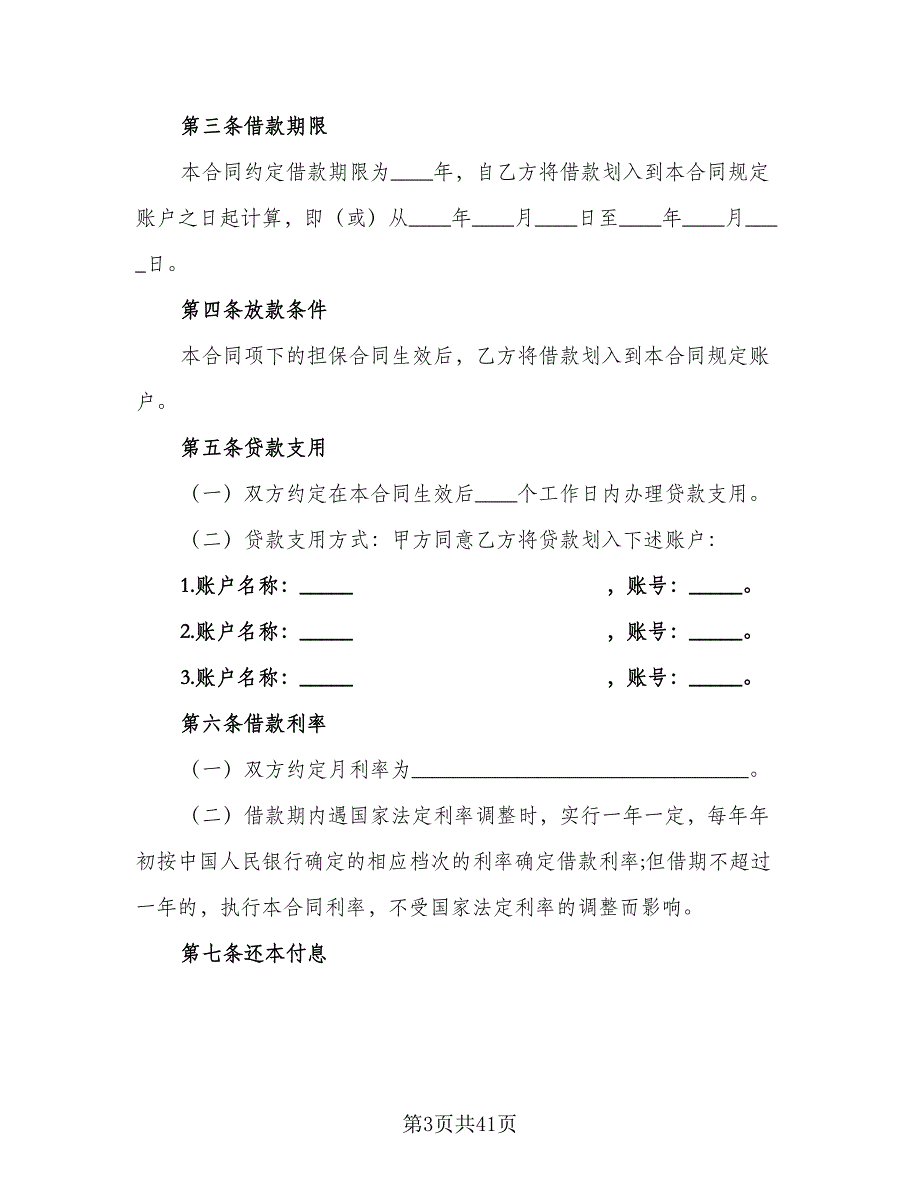 第三条借款期限
本合同约定借款期限为____年，自乙方将借款划入到本合同规定
账户之日起计算，即（或）从____年____月____日至____年____月___
_日。
第四条放款条件
本合同项下的担保合同生效后，乙方将借款划入到本合同规定账
户。
第五条贷款支用
（一）双方约定在本合同生效后____个工作日内办理贷款支用。
（二）贷款支用方式：甲方同意乙方将贷款划入下述账户：
1.账户名称：_____ ，账号：_____。
2.账户名称：_____ ，账号：_____。
3.账户名称：_____ ，账号：_____。
第六条借款利率
（一）双方约定月利率为________________________________。
（二）借款期内遇国家法定利率调整时，实行一年一定，每年年
初按中国人民银行确定的相应档次的利率确定借款利率;但借期不超过
一年的，执行本合同利率，不受国家法定利率的调整而影响。
第七条还本付息
第3页共41页